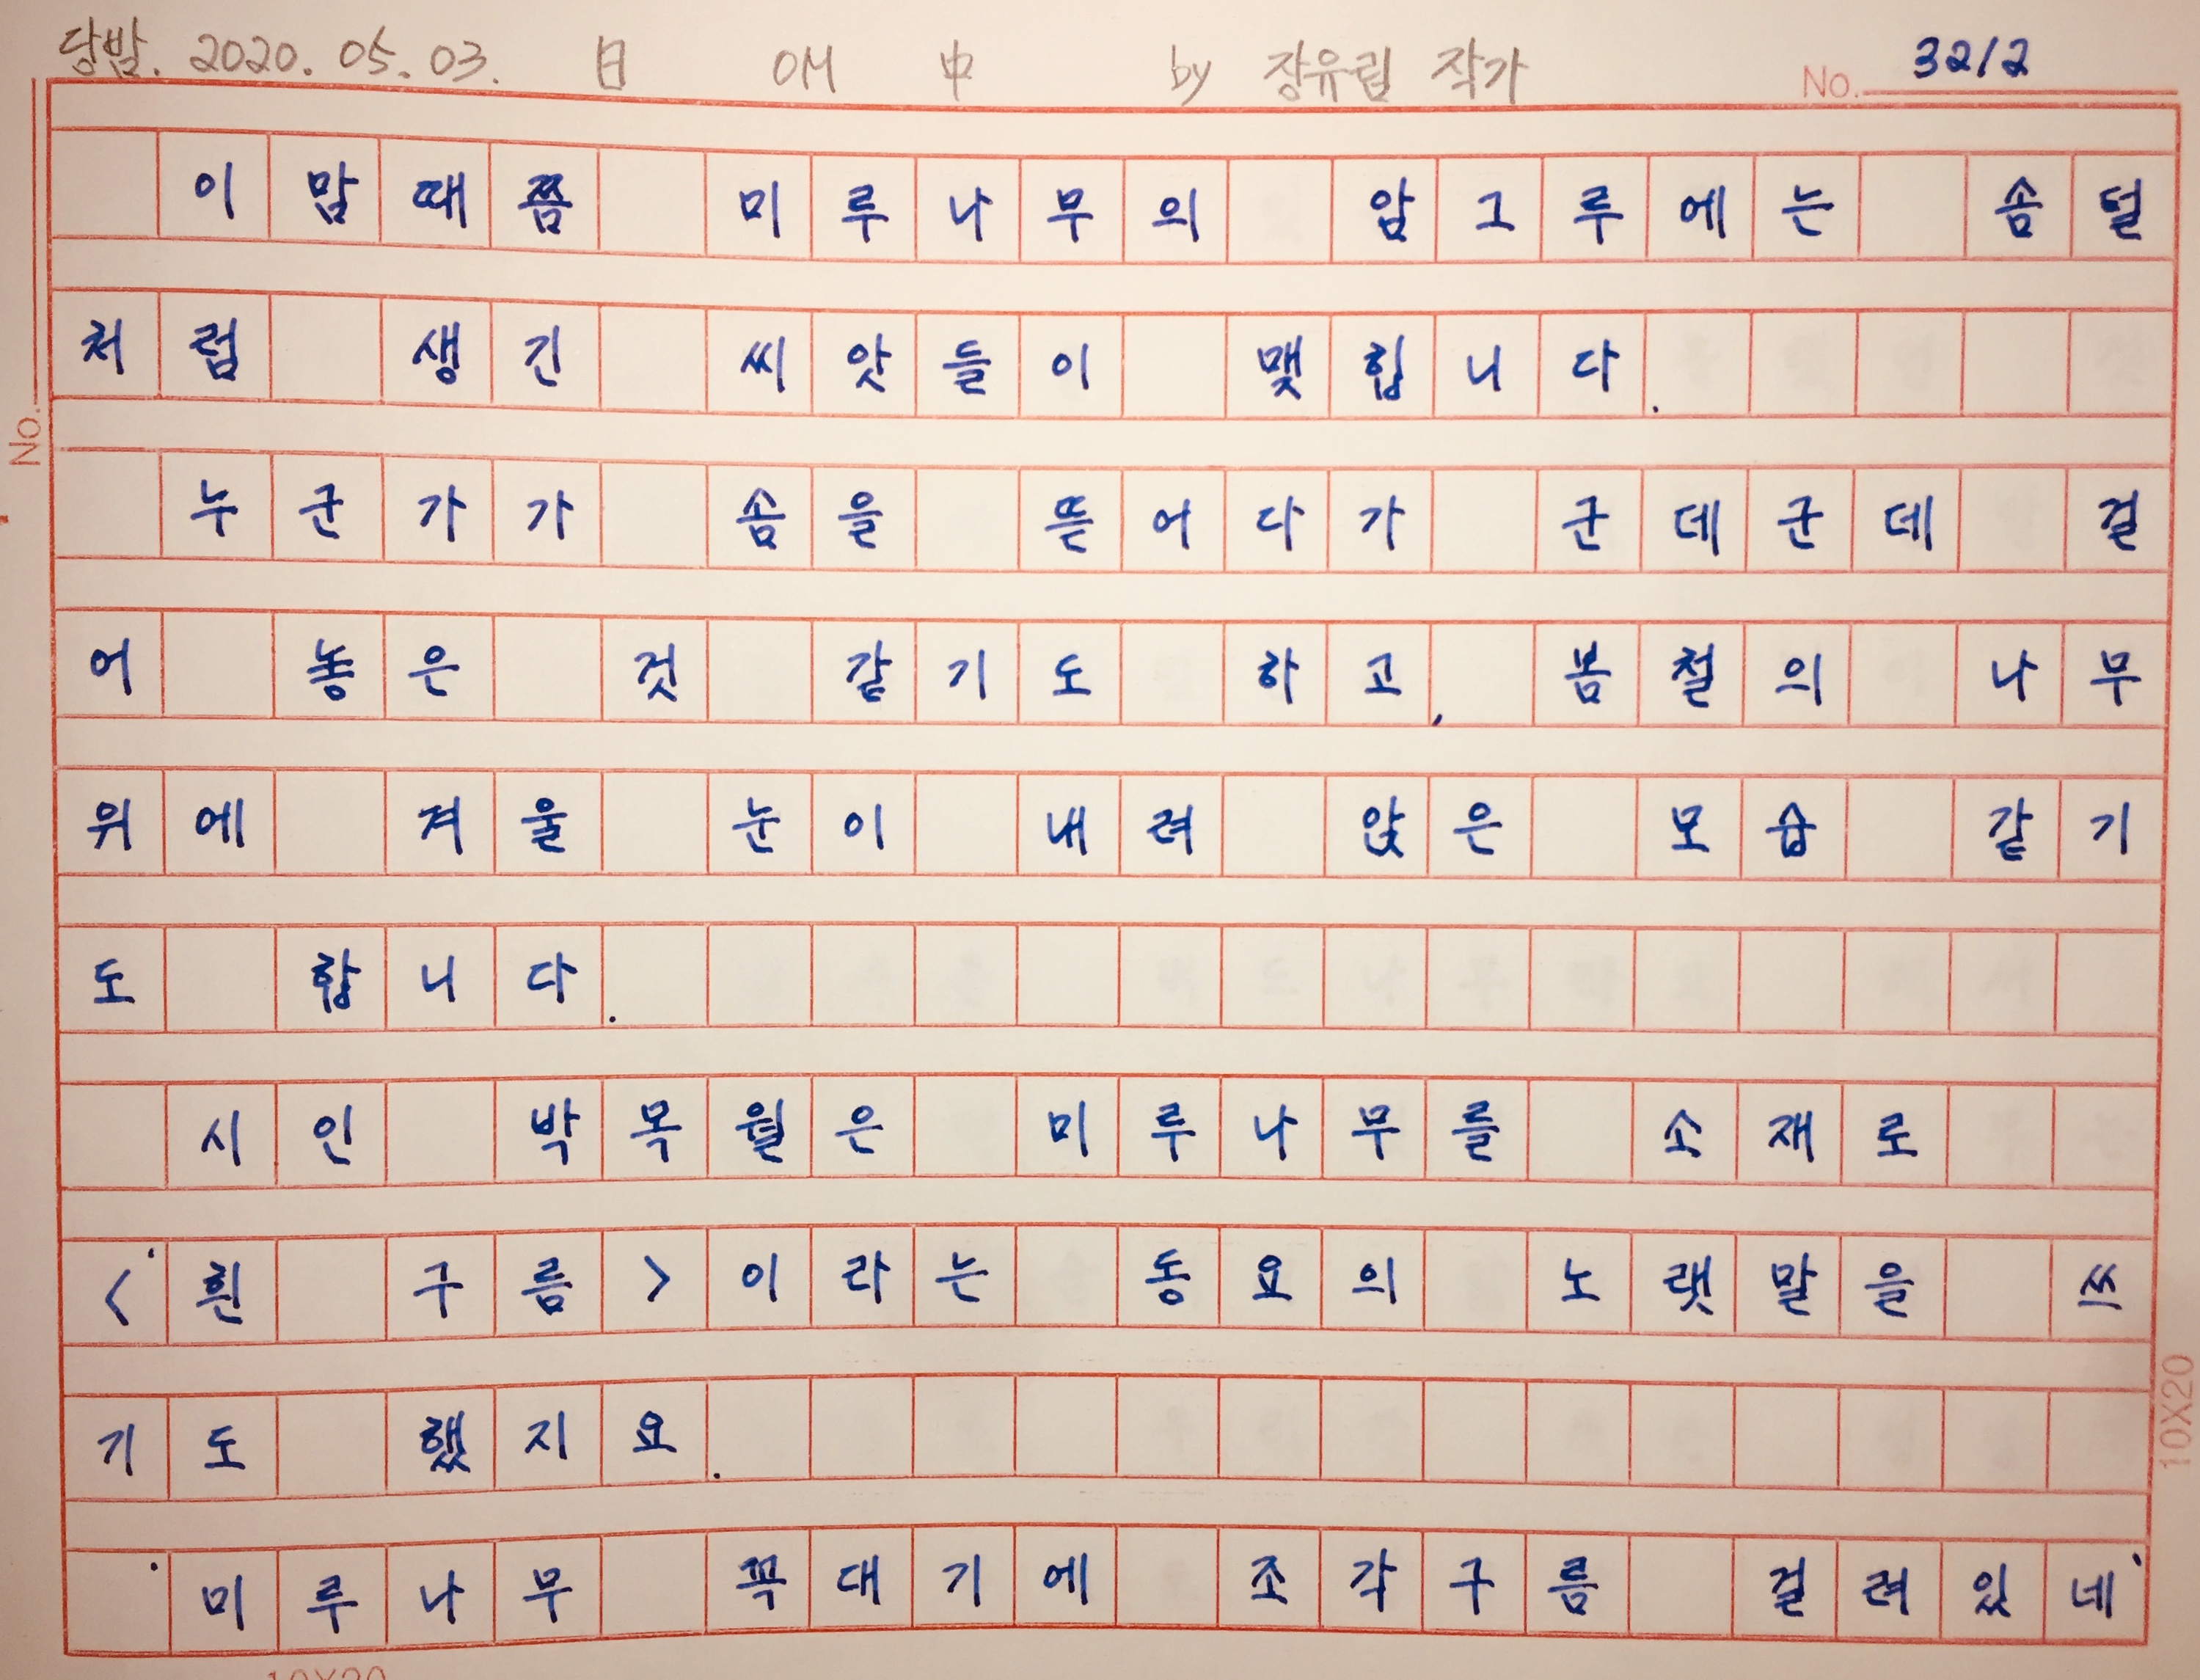 당밤. 2020. 05. 03. 日 OH 中 by 장유림 작가
No. 32/2
이맘때쯤 미루나무의 암그루에는 솜털
처럼 생긴 씨앗들이 맺힙니다.
No.
누군가가 솜을 뜯어다가 군데군데 걸
어 놓은 것 같기도 하고, 봄철의 나무
위에 겨울 눈이 내려 앉은 모습 같기
도 합니다.
시인 박목월은 미루나무를 소재로
<'흰 구름>이라는 동요의 노랫말을 쓰
기도 했지요.
'미루나무 꼭대기에 조각구름 걸려있네'
10X20
10X20